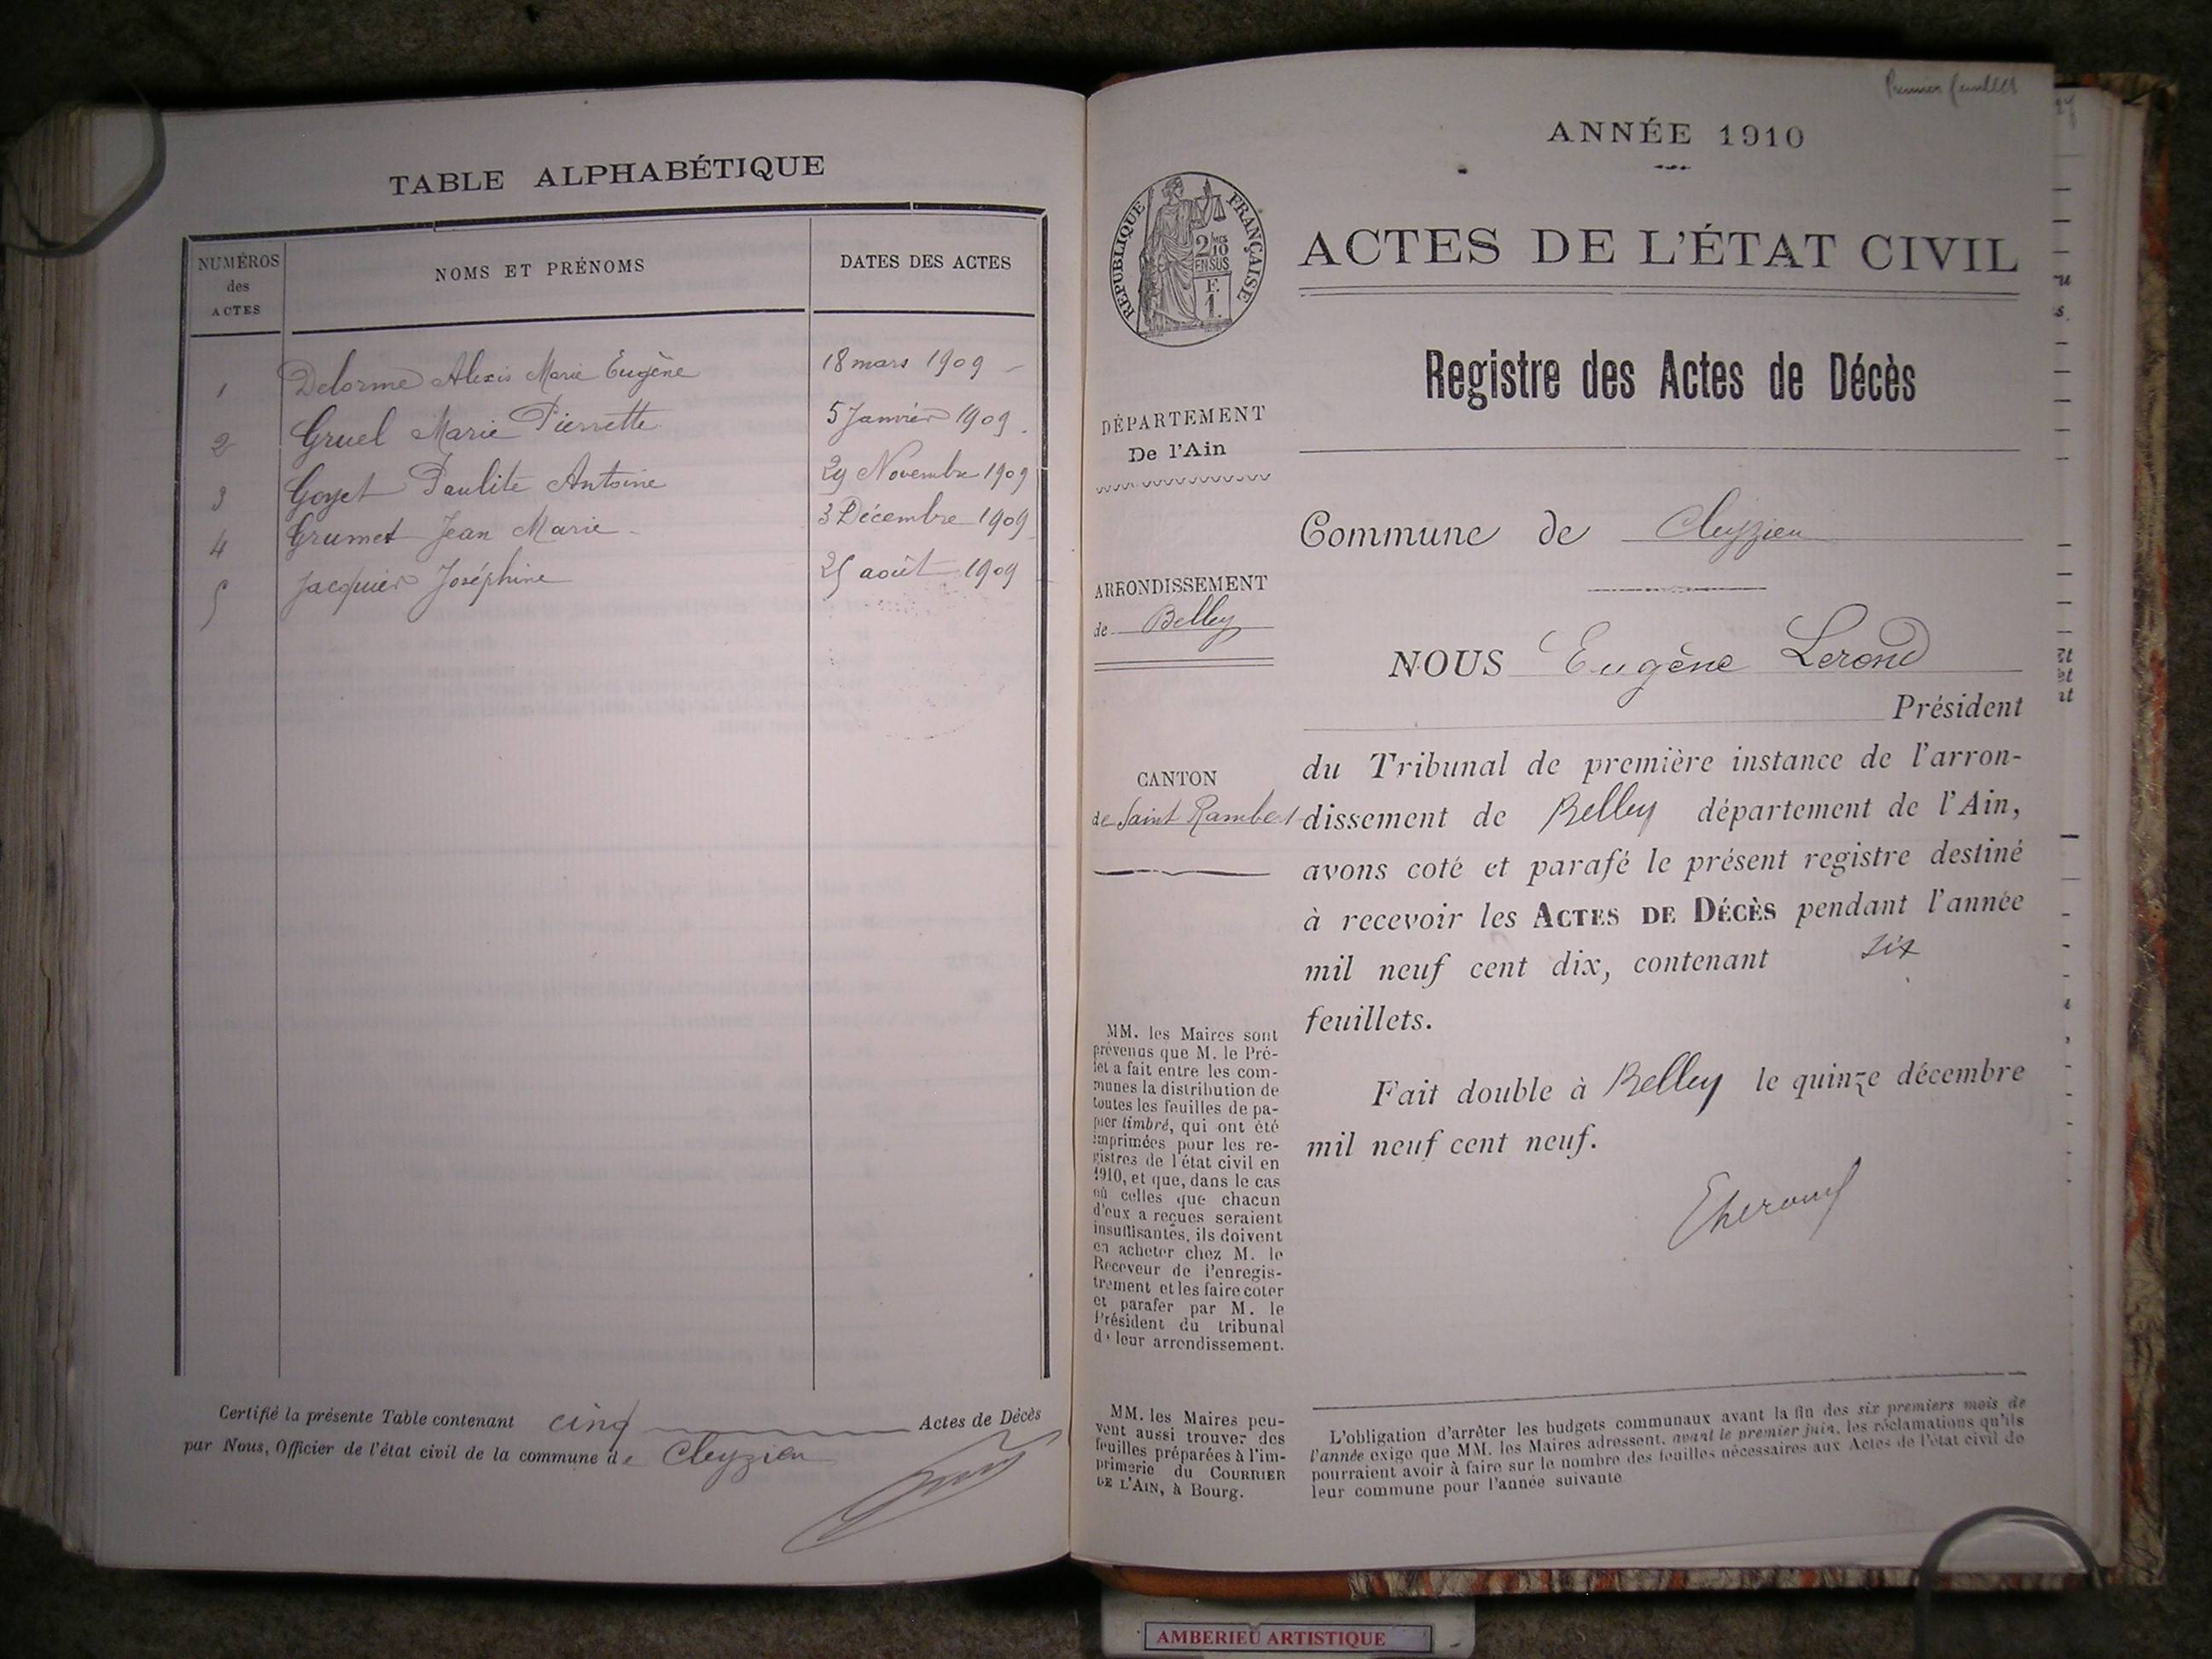 TABLE ALPHABÉTIQUE
NUMÉROS
des
ACTES
NOMS ET PRÉNOMS
DATES DES ACTES
1 Delorme Alexis Marie Eugène 18 mars 1909
2 Gruel Marie Pierrette 5 Janvier 1909
3 Goyet Paulite Antoine 29 Novembre 1909
4 Grumet Jean Marie 3 Décembre 1909
5 Jacquier Joséphine 25 août 1909
Certifié la présente Table contenant cinq Actes de Décès
par Nous, Officier de l'état civil de la commune de Cleyzieu
Premier feuillet
ANNÉE 1910
RÉPUBLIQUE FRANÇAISE
2/10
EN SUS
F.
1.
ACTES DE L'ÉTAT CIVIL
Registre des Actes de Décès
DÉPARTEMENT
De l'Ain
Commune de Cleyzieu
ARRONDISSEMENT
de Belley
NOUS Eugène Lerond
Président
CANTON
de Saint Rambert
du Tribunal de première instance de l'arron-
dissement de Belley département de l'Ain,
avons coté et parafé le présent registre destiné
à recevoir les ACTES DE DÉCÈS pendant l'année
mil neuf cent dix, contenant six
feuillets.
Fait double à Belley le quinze décembre
mil neuf cent neuf.
MM. les Maires sont
prévenus que M. le Pré-
fet a fait entre les com-
munes la distribution de
toutes les feuilles de pa-
pier timbré, qui ont été
imprimées pour les re-
gistres de l'état civil en
1910, et que, dans le cas
où celles que chacun
d'eux a reçues seraient
insuffisantes, ils doivent
en acheter chez M. le
Receveur de l'enregis-
trement et les faire coter
et parafer par M. le
Président du tribunal
de leur arrondissement.
MM. les Maires peu-
vent aussi trouver des
feuilles préparées à l'im-
primerie du COURRIER
DE L'AIN, à Bourg.
L'obligation d'arrêter les budgets communaux avant la fin des six premiers mois de
l'année exige que MM. les Maires adressent, avant le premier juin, les réclamations qu'ils
pourraient avoir à faire sur le nombre des feuilles nécessaires aux Actes de l'état civil de
leur commune pour l'année suivante
AMBERIEU ARTISTIQUE